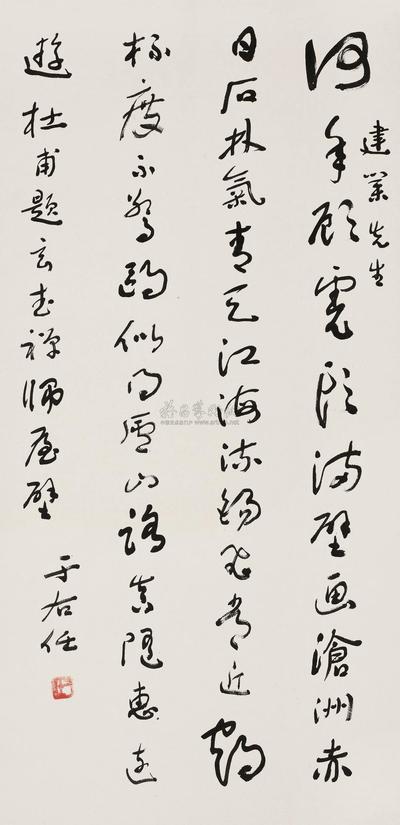 何年顧虎頭滿壁画滄洲赤
建業先生
日石林氣青天江海流錫飛常近鶴
杯度不驚鷗似得廬山路真隨惠遠
遊杜甫題玄武禪師屋壁
于右任